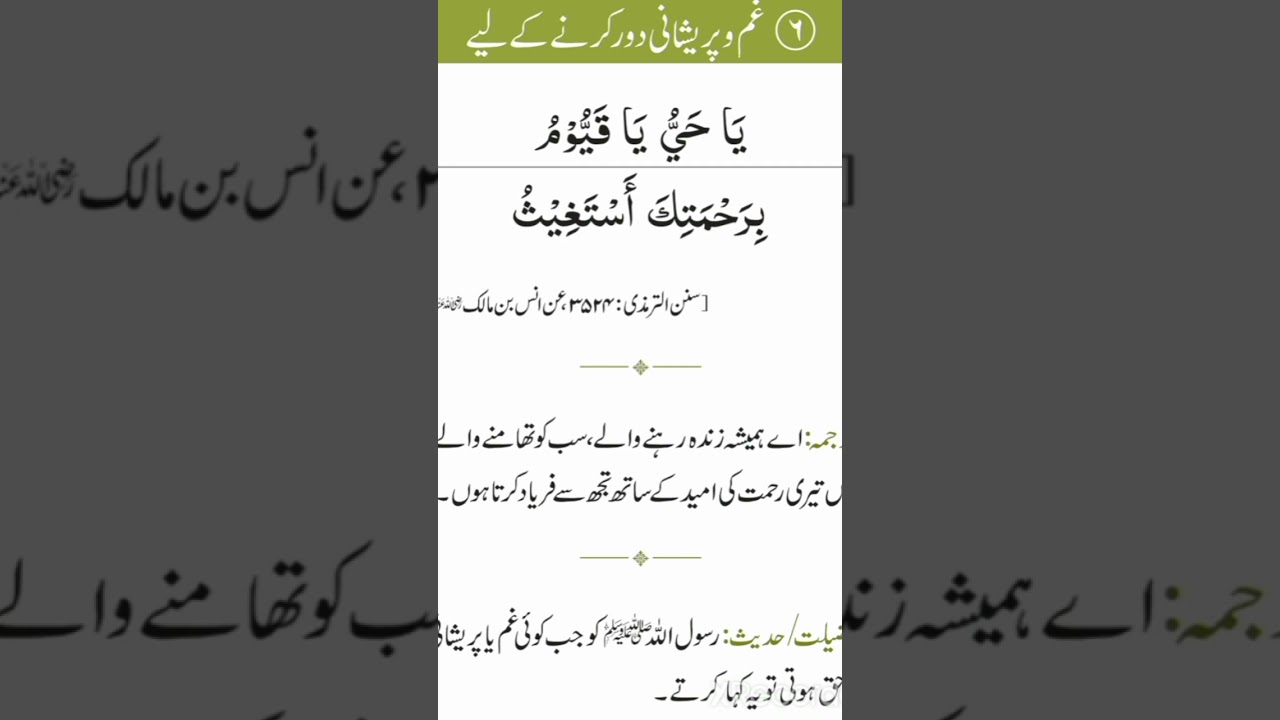 ۶ غم و پریشانی دور کرنے کے لیے
یَا حَيُّ یَا قَیُّوْمُ
بِرَحْمَتِكَ أَسْتَغِیْثُ
[سنن الترمذی: ۳۵۲۴، عن انس بن مالک رضی اللہ عنہ
جمہ: اے ہمیشہ زندہ رہنے والے، سب کو تھامنے والے
ں تیری رحمت کی امید کے ساتھ تجھ سے فریاد کرتا ہوں۔
ضیلت/حدیث: رسول اللہ ﷺ کو جب کوئی غم یا پریشانی
حق ہوتی تو یہ کہا کرتے۔